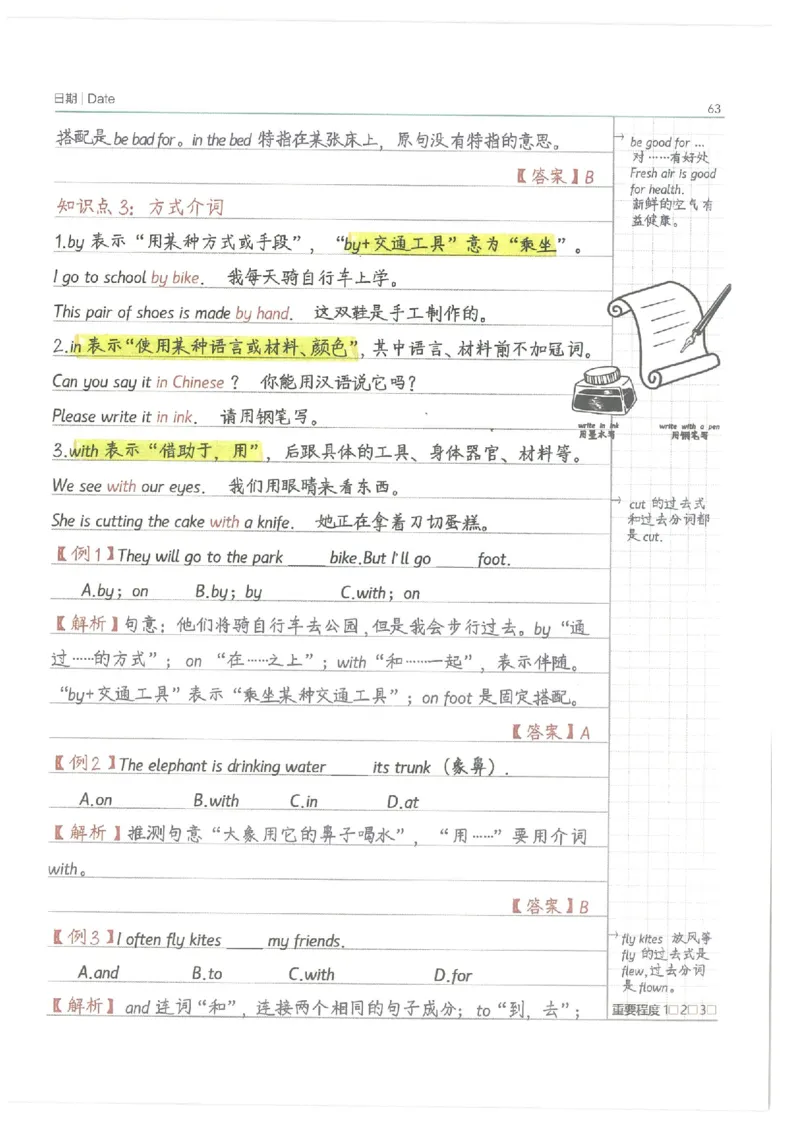 日期 | Date
63
搭配是 be bad for。in the bed 特指在某张床上，原句没有特指的意思。
【答案】B
知识点 3：方式介词
1.by 表示“用某种方式或手段”，“by+交通工具”意为“乘坐”。
I go to school by bike. 我每天骑自行车上学。
This pair of shoes is made by hand. 这双鞋是手工制作的。
2.in 表示“使用某种语言或材料、颜色”，其中语言、材料前不加冠词。
Can you say it in Chinese？ 你能用汉语说它吗？
Please write it in ink. 请用钢笔写。
3.with 表示“借助于，用”，后跟具体的工具、身体器官、材料等。
We see with our eyes. 我们用眼睛来看东西。
She is cutting the cake with a knife. 她正在拿着刀切蛋糕。
【例1】They will go to the park ____ bike.But I'll go ____ foot.
A.by；on B.by；by C.with；on
【解析】句意：他们将骑自行车去公园，但是我会步行过去。by“通
过……的方式”；on “在……之上”；with“和……一起”，表示伴随。
“by+交通工具”表示“乘坐某种交通工具”；on foot 是固定搭配。
【答案】A
【例2】The elephant is drinking water ____ its trunk（象鼻）.
A.on B.with C.in D.at
【解析】推测句意“大象用它的鼻子喝水”，“用……”要用介词
with。
【答案】B
【例3】I often fly kites ____ my friends.
A.and B.to C.with D.for
【解析】and 连词“和”，连接两个相同的句子成分；to“到，去”；
→ be good for …
对……有好处
Fresh air is good
for health.
新鲜的空气有
益健康。
write in ink
用墨水写
write with a pen
用钢笔写
→ cut 的过去式
和过去分词都
是 cut.
→ fly kites 放风筝
fly 的过去式是
flew,过去分词
是 flown。
重要程度 1□ 2□ 3□